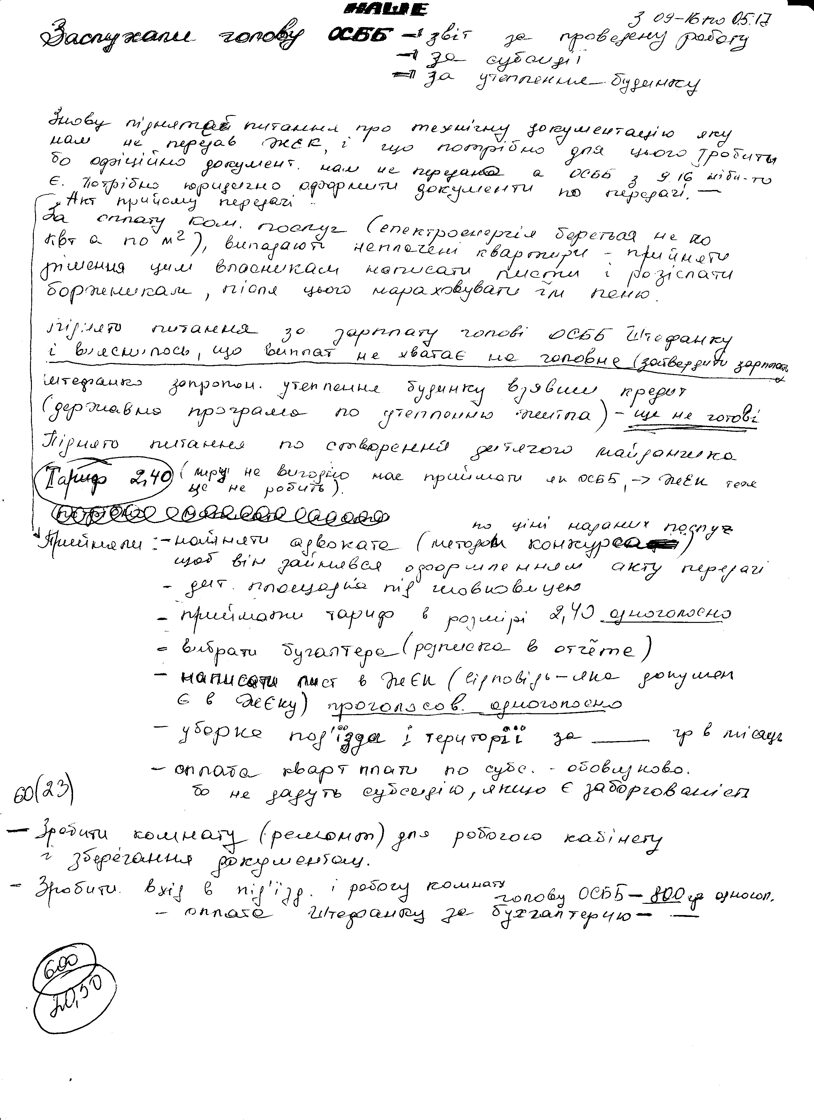 НАШЕ
з 09-16 по 05.17
Заслухали голову ОСББ → звіт за проведену роботу
→ за субсидії
→ за утеплення будинку
Знову піднятий питання про технічну документацію яку
нам не передав ЖЕК, і що потрібно для цього зробити
бо офіційно документ. нам не передано а ОСББ з 9 16 ніби-то
є. Потрібно юридично оформити документи по передачі. —
Акт прийому передачі
За оплату ком. послуг (електроенергія береться не по
квт а по м²), випадають неплачені квартири - прийняти
рішення цим власникам написати листи і розіслати
боржникам, після цього нараховувати їм пеню.
Піднято питання за зарплату голові ОСББ Штефанку
і вияснилось, що виплат не хватає на головне (затвердити зарплат.
Штефанко запропон. утеплення будинку взявши кредит
(державна програма по утепленню житла) - ще не готові
Піднято питання по створенні дитячого майданчика
Тариф 2,40 (миру не вигідно нас приймати як ОСББ, → ЖЕК теж
це не робить).
по ціні наданих послуг
Прийняли: - найняти адвоката (методом конкурса)
щоб він зайнявся оформленням акту передачі
- дит. площадка під шовковицею
- приймати тариф в розмірі 2,40 одноголосно
- вибрати бугалтера (розписка в отчёте)
- написати лист в ЖЕК (відповідь - яка докумен
є в ЖЕКу) проголосов. одноголосно
- уборка под'їзда і території за ____ гр в місяць
- оплата кварт плати по субс. - обовязково.
60(23)
бо не дадуть субсидію, якщо є заборгованість
- Зробити комнату (ремонт) для робочого кабінету
і зберегання документам.
- Зробити вхід в під'їзд. і робочу комнату
голову ОСББ - 800 гр одногол.
- оплата Штефанку за бухгалтерию - —
600
20,50